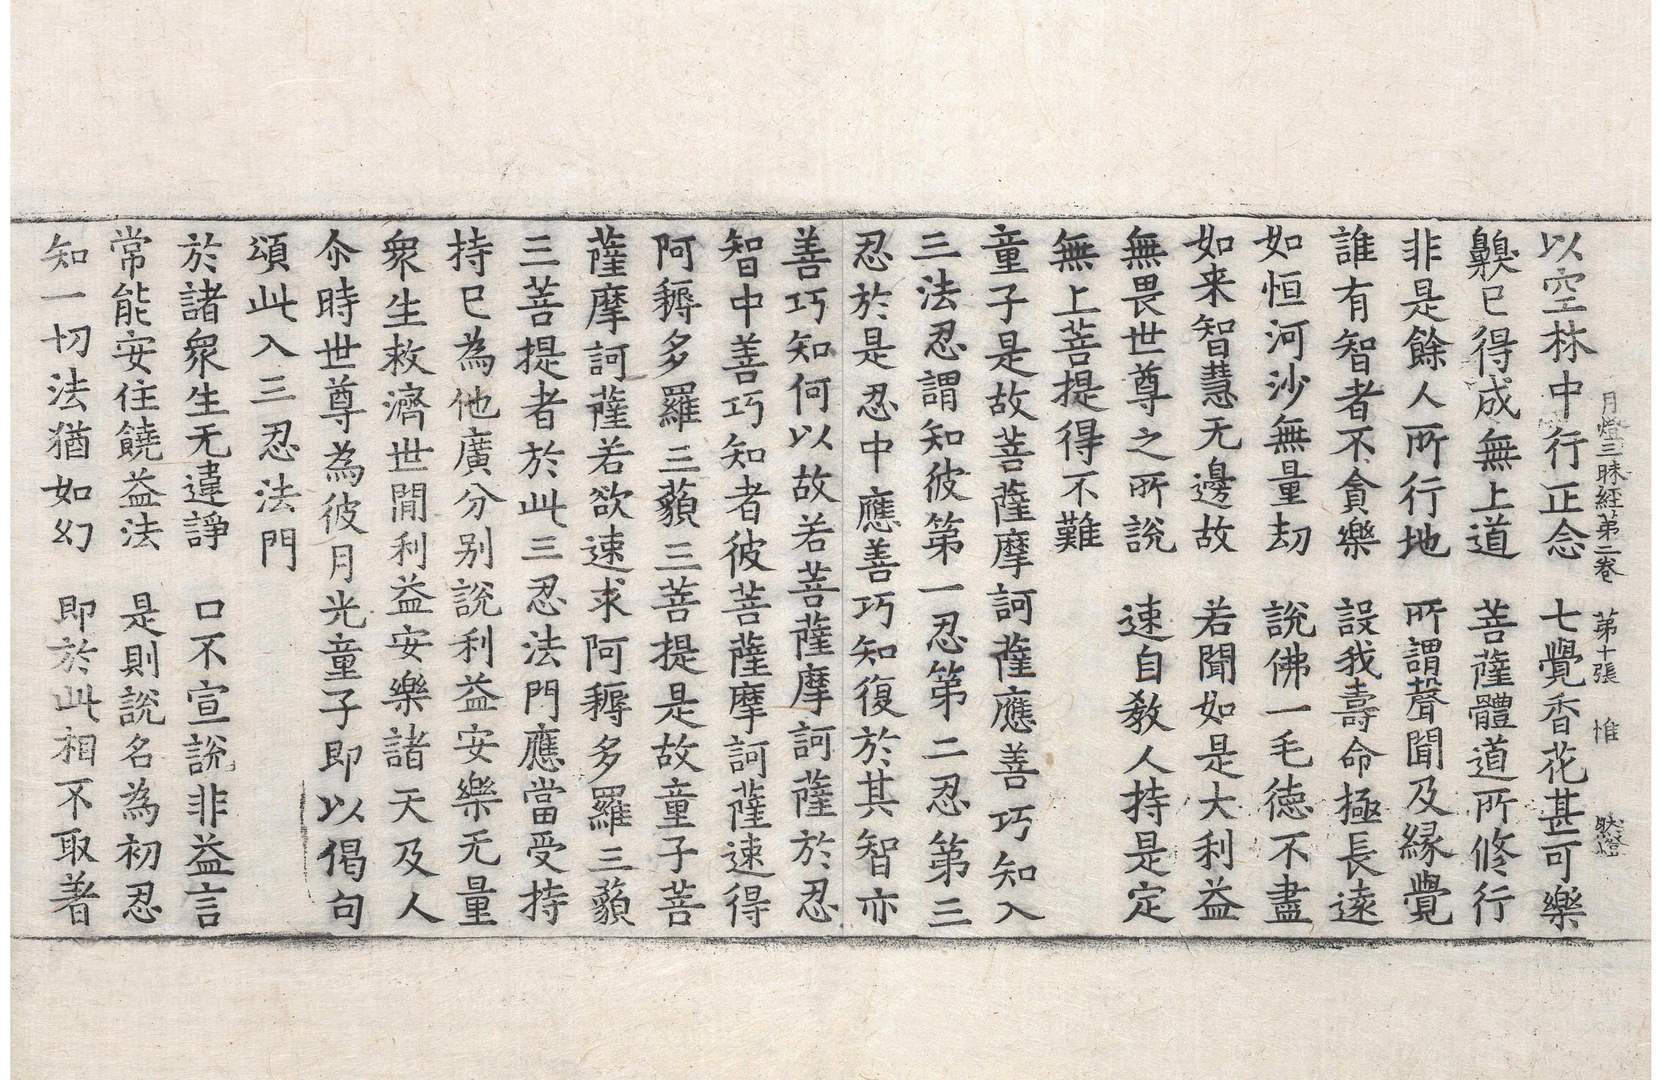 月燈三昧經第二卷　第十張　惟
以空林中行正念　七覺香花甚可樂
齅已得成無上道　菩薩體道所修行
非是餘人所行地　所謂聲聞及緣覺
誰有智者不貪樂　設我壽命極長遠
如恒河沙無量劫　說佛一毛德不盡
如来智慧无邊故　若聞如是大利益
無畏世尊之所說　速自教人持是定
無上菩提得不難
童子是故菩薩摩訶薩應善巧知入
三法忍謂知彼第一忍第二忍第三
忍於是忍中應善巧知復於其智亦
善巧知何以故若菩薩摩訶薩於忍
智中善巧知者彼菩薩摩訶薩速得
阿耨多羅三藐三菩提是故童子菩
薩摩訶薩若欲速求阿耨多羅三藐
三菩提者於此三忍法門應當受持
持已為他廣分別說利益安樂无量
衆生救濟世閒利益安樂諸天及人
尒時世尊為彼月光童子即以偈句
頌此入三忍法門
於諸衆生无違諍　口不宣說非益言
常能安住饒益法　是則說名為初忍
知一切法猶如幻　即於此相不取著